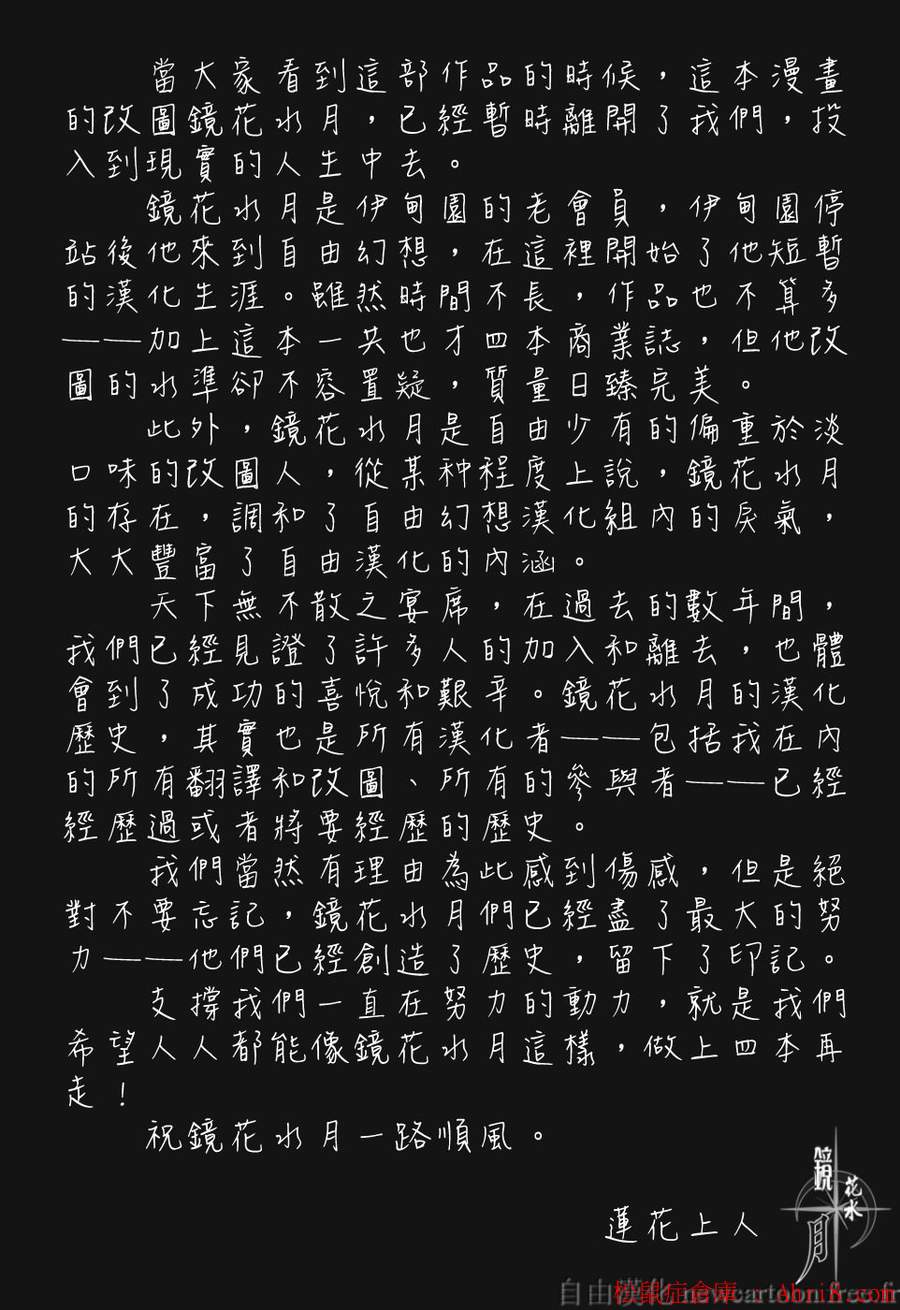 當大家看到這部作品的時候，這本漫畫
的改圖鏡花水月，已經暫時離開了我們，投
入到現實的人生中去。
鏡花水月是伊甸園的老會員，伊甸園停
站後他來到自由幻想，在這裡開始了他短暫
的漢化生涯。雖然時間不長，作品也不算多
——加上這本一共也才四本商業誌，但他改
圖的水準卻不容置疑，質量日臻完美。
此外，鏡花水月是自由少有的偏重於淡
口味的改圖人，從某种程度上說，鏡花水月
的存在，調和了自由幻想漢化組內的戾氣，
大大豐富了自由漢化的內涵。
天下無不散之宴席，在過去的數年間，
我們已經見證了許多人的加入和離去，也體
會到了成功的喜悅和艱辛。鏡花水月的漢化
歷史，其實也是所有漢化者——包括我在內
的所有翻譯和改圖、所有的參與者——已經
經歷過或者將要經歷的歷史。
我們當然有理由為此感到傷感，但是絕
對不要忘記，鏡花水月們已經盡了最大的努
力——他們已經創造了歷史，留下了印記。
支撐我們一直在努力的動力，就是我們
希望人人都能像鏡花水月這樣，做上四本再
走！
祝鏡花水月一路順風。
蓮花上人
鏡花水月
自由漢化